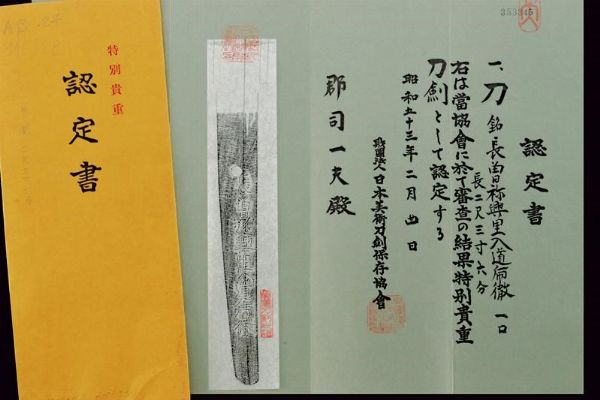 特別貴重
認定書
353345
認定書
一、刀 銘 長曽祢興里入道乕徹 一口
長二尺三寸六分
右は當協會に於て審査の結果特別貴重
刀劍として認定する
昭和五十三年二月
日
財團法人日本美術刀劍保存協會
郡司一夫殿